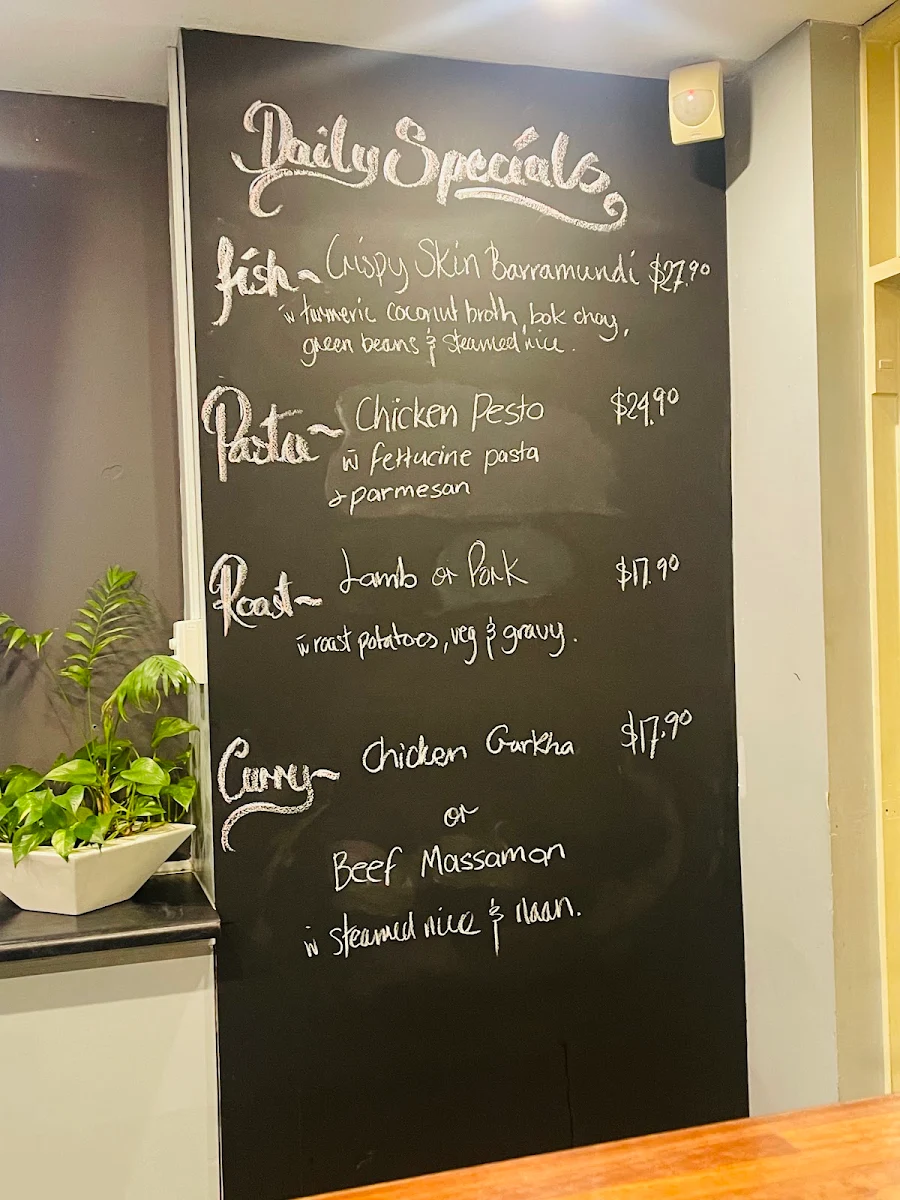 Daily Specials
fish ~ Crispy Skin Barramundi $27.90
w turmeric coconut broth, bok choy,
green beans & steamed rice.
Pasta ~ Chicken Pesto $24.90
w fettucine pasta
& parmesan
Roast ~ Lamb or Pork $17.90
w roast potatoes, veg & gravy.
Curry ~ Chicken Gurkha $17.90
or
Beef Massaman
w steamed rice & Naan.